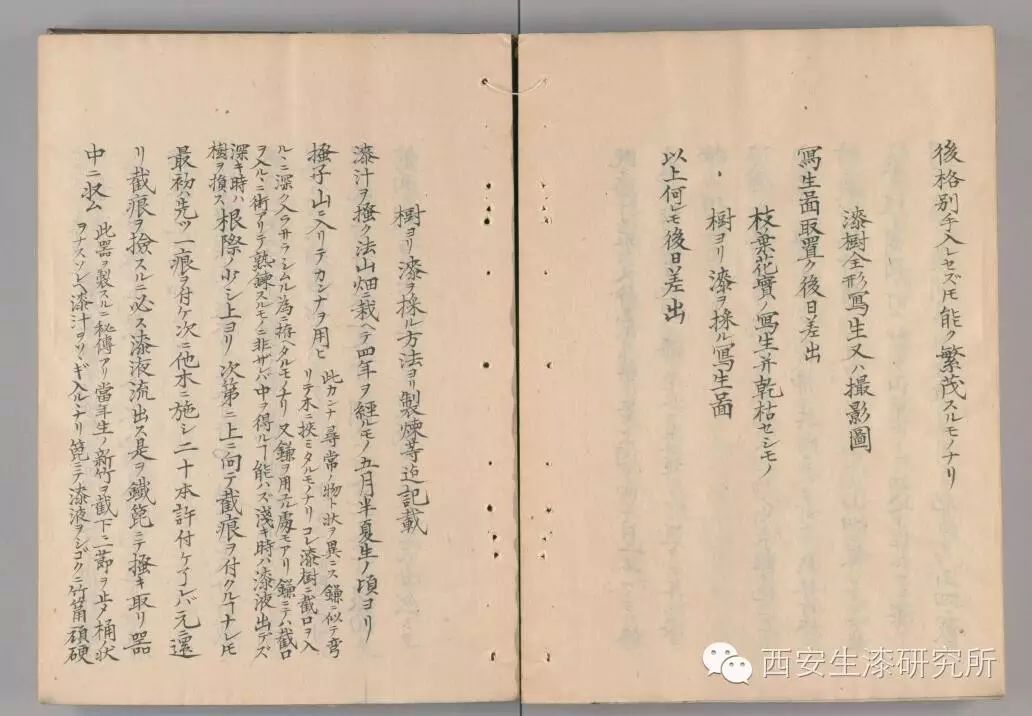 後格別手入レセズモ能ク繁茂スルモノナリ
漆樹全形寫生又ハ撮影圖
寫生啚取置ク後日差出
枝葉花實ノ寫生并乾枯セシモノ
樹ヨリ漆ヲ採ル寫生啚
以上何レモ後日差出
樹ヨリ漆ヲ採ル方法ヨリ製煉等迠記載
漆汁ヲ搔ク法山畑ニ栽ヘテ四年ヲ經ルモノ五月半夏生ノ頃ヨリ
搔子山ニ入リテカンナヲ用ヒ
此カンナ尋常ノ物ト状ヲ異ニス鎌ニ似テ弯
リテ木ニ挾ミタルモノナリコレ漆樹ニ截口ヲ入
ルヽニ深ク入ラサラシムル為ニ拵ヘタルモノナリ又鎌ヲ用ユル處モアリ鎌ニテハ截口
ヲ入ルヽニ術アリテ熟練スルモノニ非ザレバ中ヲ得ルヿ能ハズ淺キ時ハ漆液出デズ
深キ時ハ樹ヲ損ス
根際ノ少シ上ヨリ次第ニ上ニ向テ截痕ヲ付クルヿナレモ
最初ハ先ツ一痕ヲ付ケ次ニ他木ニ施シ二十本許付ケ了レバ元ニ還
リ截痕ヲ撿スルニ必ス漆液流出ス是ヲ鐵篦ニテ搔キ取リ器
中ニ収ム
此器ヲ製スルニ秘傳アリ當年生ノ新竹ヲ截下ニ一節ヲ止メ桶ノ状
ヲナスソレヘ漆汁ヲソヽギ入ルヽナリ篦ニテ漆液ヲシゴクニ竹筩頑硬
西安生漆研究所